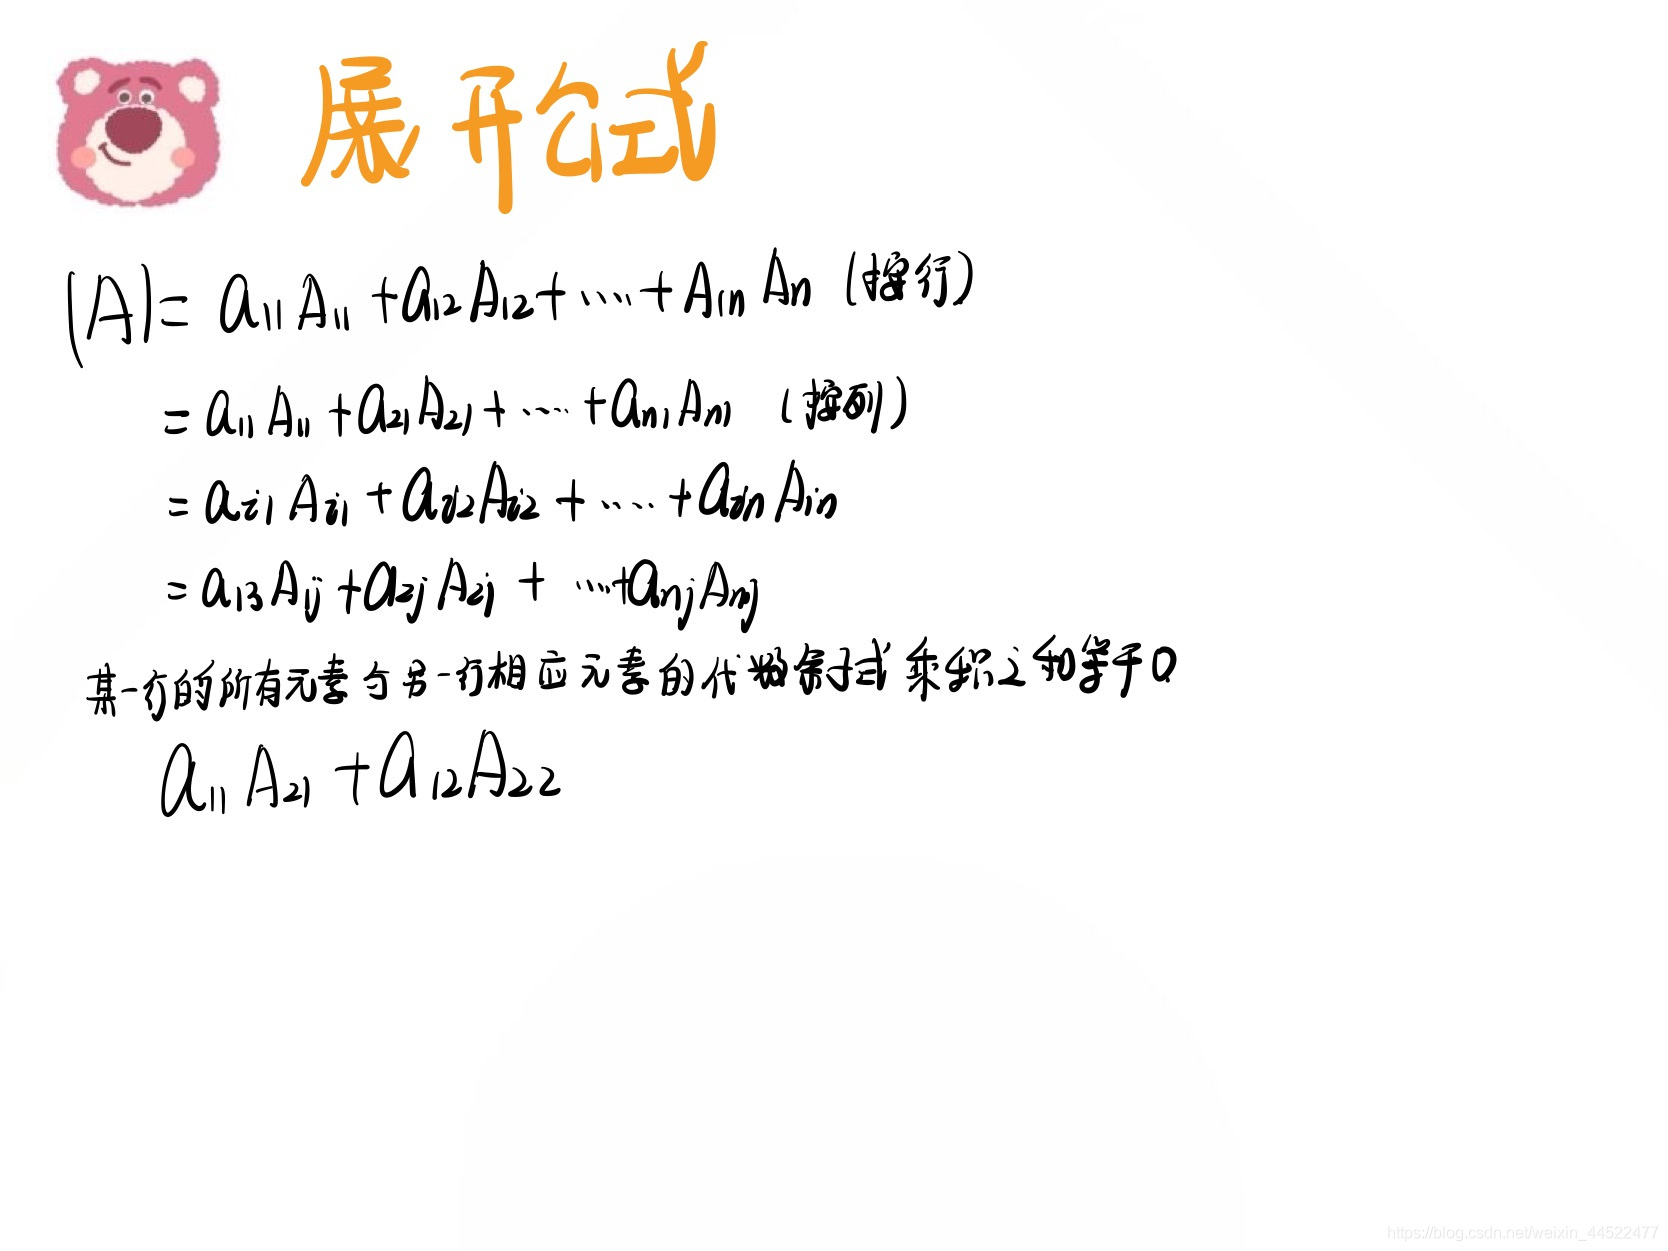 展开公式
|A| = a₁₁A₁₁ + a₁₂A₁₂ + ····· + A₁ₙ Aₙ (按行)
= a₁₁A₁₁ + a₂₁A₂₁ + ····· + aₙ₁Aₙ₁ (按列)
= aᵢ₁Aᵢ₁ + aᵢ₂Aᵢ₂ + ····· + aᵢₙAᵢₙ
= a₁₃A₁ⱼ + a₂ⱼA₂ⱼ + ····+ aₙⱼAₙⱼ
某一行的所有元素与另一行相应元素的代数余子式乘积之和等于0
a₁₁A₂₁ + a₁₂A₂₂
https://blog.csdn.net/weixin_44522477